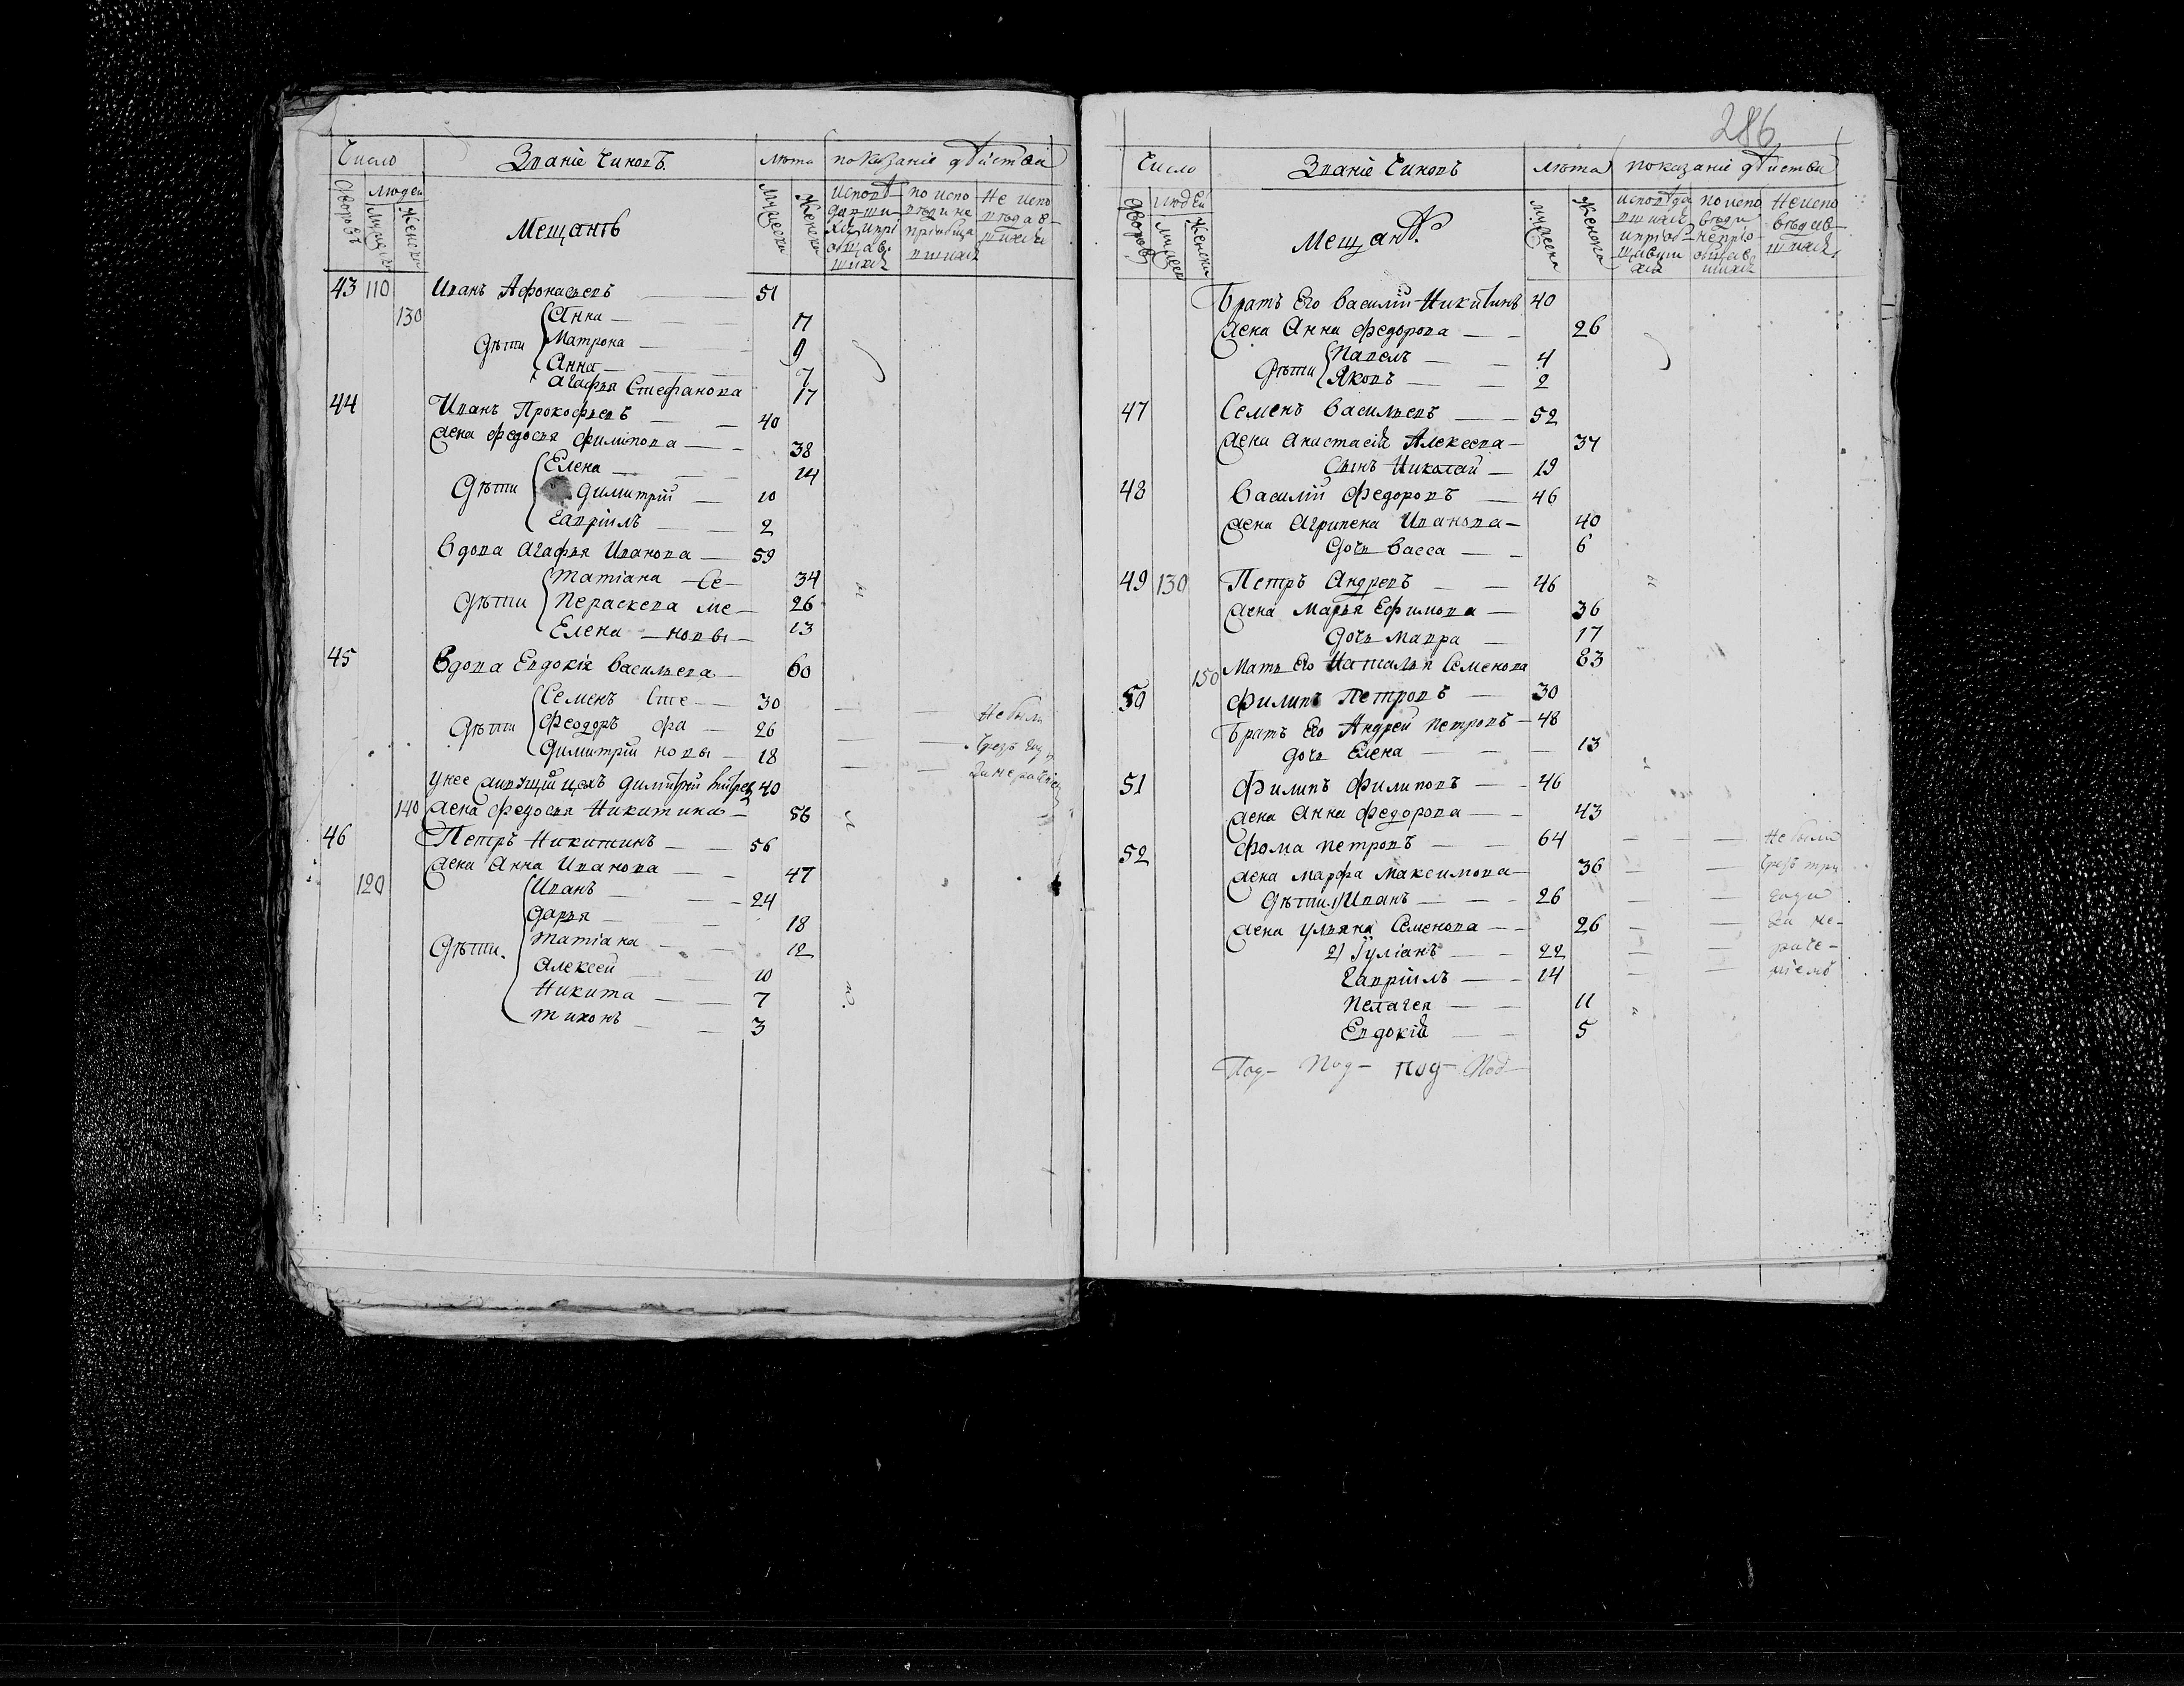 Число Званіе Чиновъ. лѣта показаніе дѣйствій
Дворовъ людей
Мужска Женска
Мещанъ
Мужеска Женска
исповѣ по испо Не испо
давши вѣди не вѣдав
хся и прі пріобща шихся
общав вшихся
шихся
43 110 Иванъ Афонасьевъ 51
130 Анна 17
Дѣти Матрона 9
Анна 7
Агафья Стефанова 17
44 Иванъ Прокофьевъ 40
жена Федосья Филипова 38
Елена 14
Дѣти Димитрій 10
Гавріилъ 2
Вдова Агафья Иванова 59
Татіана Се 34
Дѣти Пераскева ме 26
Елена новы 13
45 Вдова Евдокія Васильева 60
Семенъ Сте 30 Не были
Дѣти Феодоръ фа 26 чрезъ годъ
Димитрій новы 18
У нее живущій Димитрій 40
140 жена Федосья Никитина 56
46 Петръ Никитинъ 56
жена Анна Иванова 47
120 Иванъ 24
Дарья 18
Татіана 12
Дѣти. Алексей 10
Никита 7
Тихонъ 3
286
Число Званіе Чиновъ лѣта показаніе дѣйствій
Дворовъ людей
Мужеск Женска
Мещанъ.
мужеска Женска
исповѣда по испо Не испо
вшихся вѣди вѣдав
и пріоб не прі шихся
щавши общав
хся шихся
Братъ Его Василій Никитинъ 40
жена Анна Федорова 26
Дѣти Павелъ 4
Яковъ 2
47 Семенъ Васильевъ 52
жена Анастасія Алексеева 37
Сынъ Николай 19
48 Василій Федоровъ 46
жена Агрипена Иванова 40
Дочь Васса 6
49 130 Петръ Андревъ 46
жена Марья Ефимова 36
Дочь Мавра 17
150 Мать Его Наталья Семенова 83
50 Филипъ Петровъ 30
Братъ Его Андрей Петровъ 48
Дочь Елена 13
51 Филипъ Филиповъ 46
жена Анна Федорова 43
52 Фома Петровъ 64 Не были
жена Марфа Максимова 36 чрезъ три
Дѣти 1) Иванъ 26 года
жена Ульяна Семенова 26 за не-
2) Іуліанъ 22 раче-
Гавріилъ 14 ніемъ
Пелагея 11
Евдокія 5
Под- Под- Под- Под-